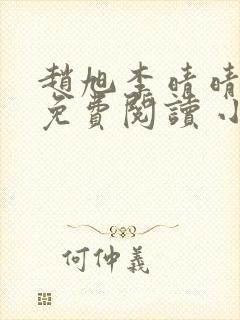 趙旭李晴晴
免費閱讀小
何仲義